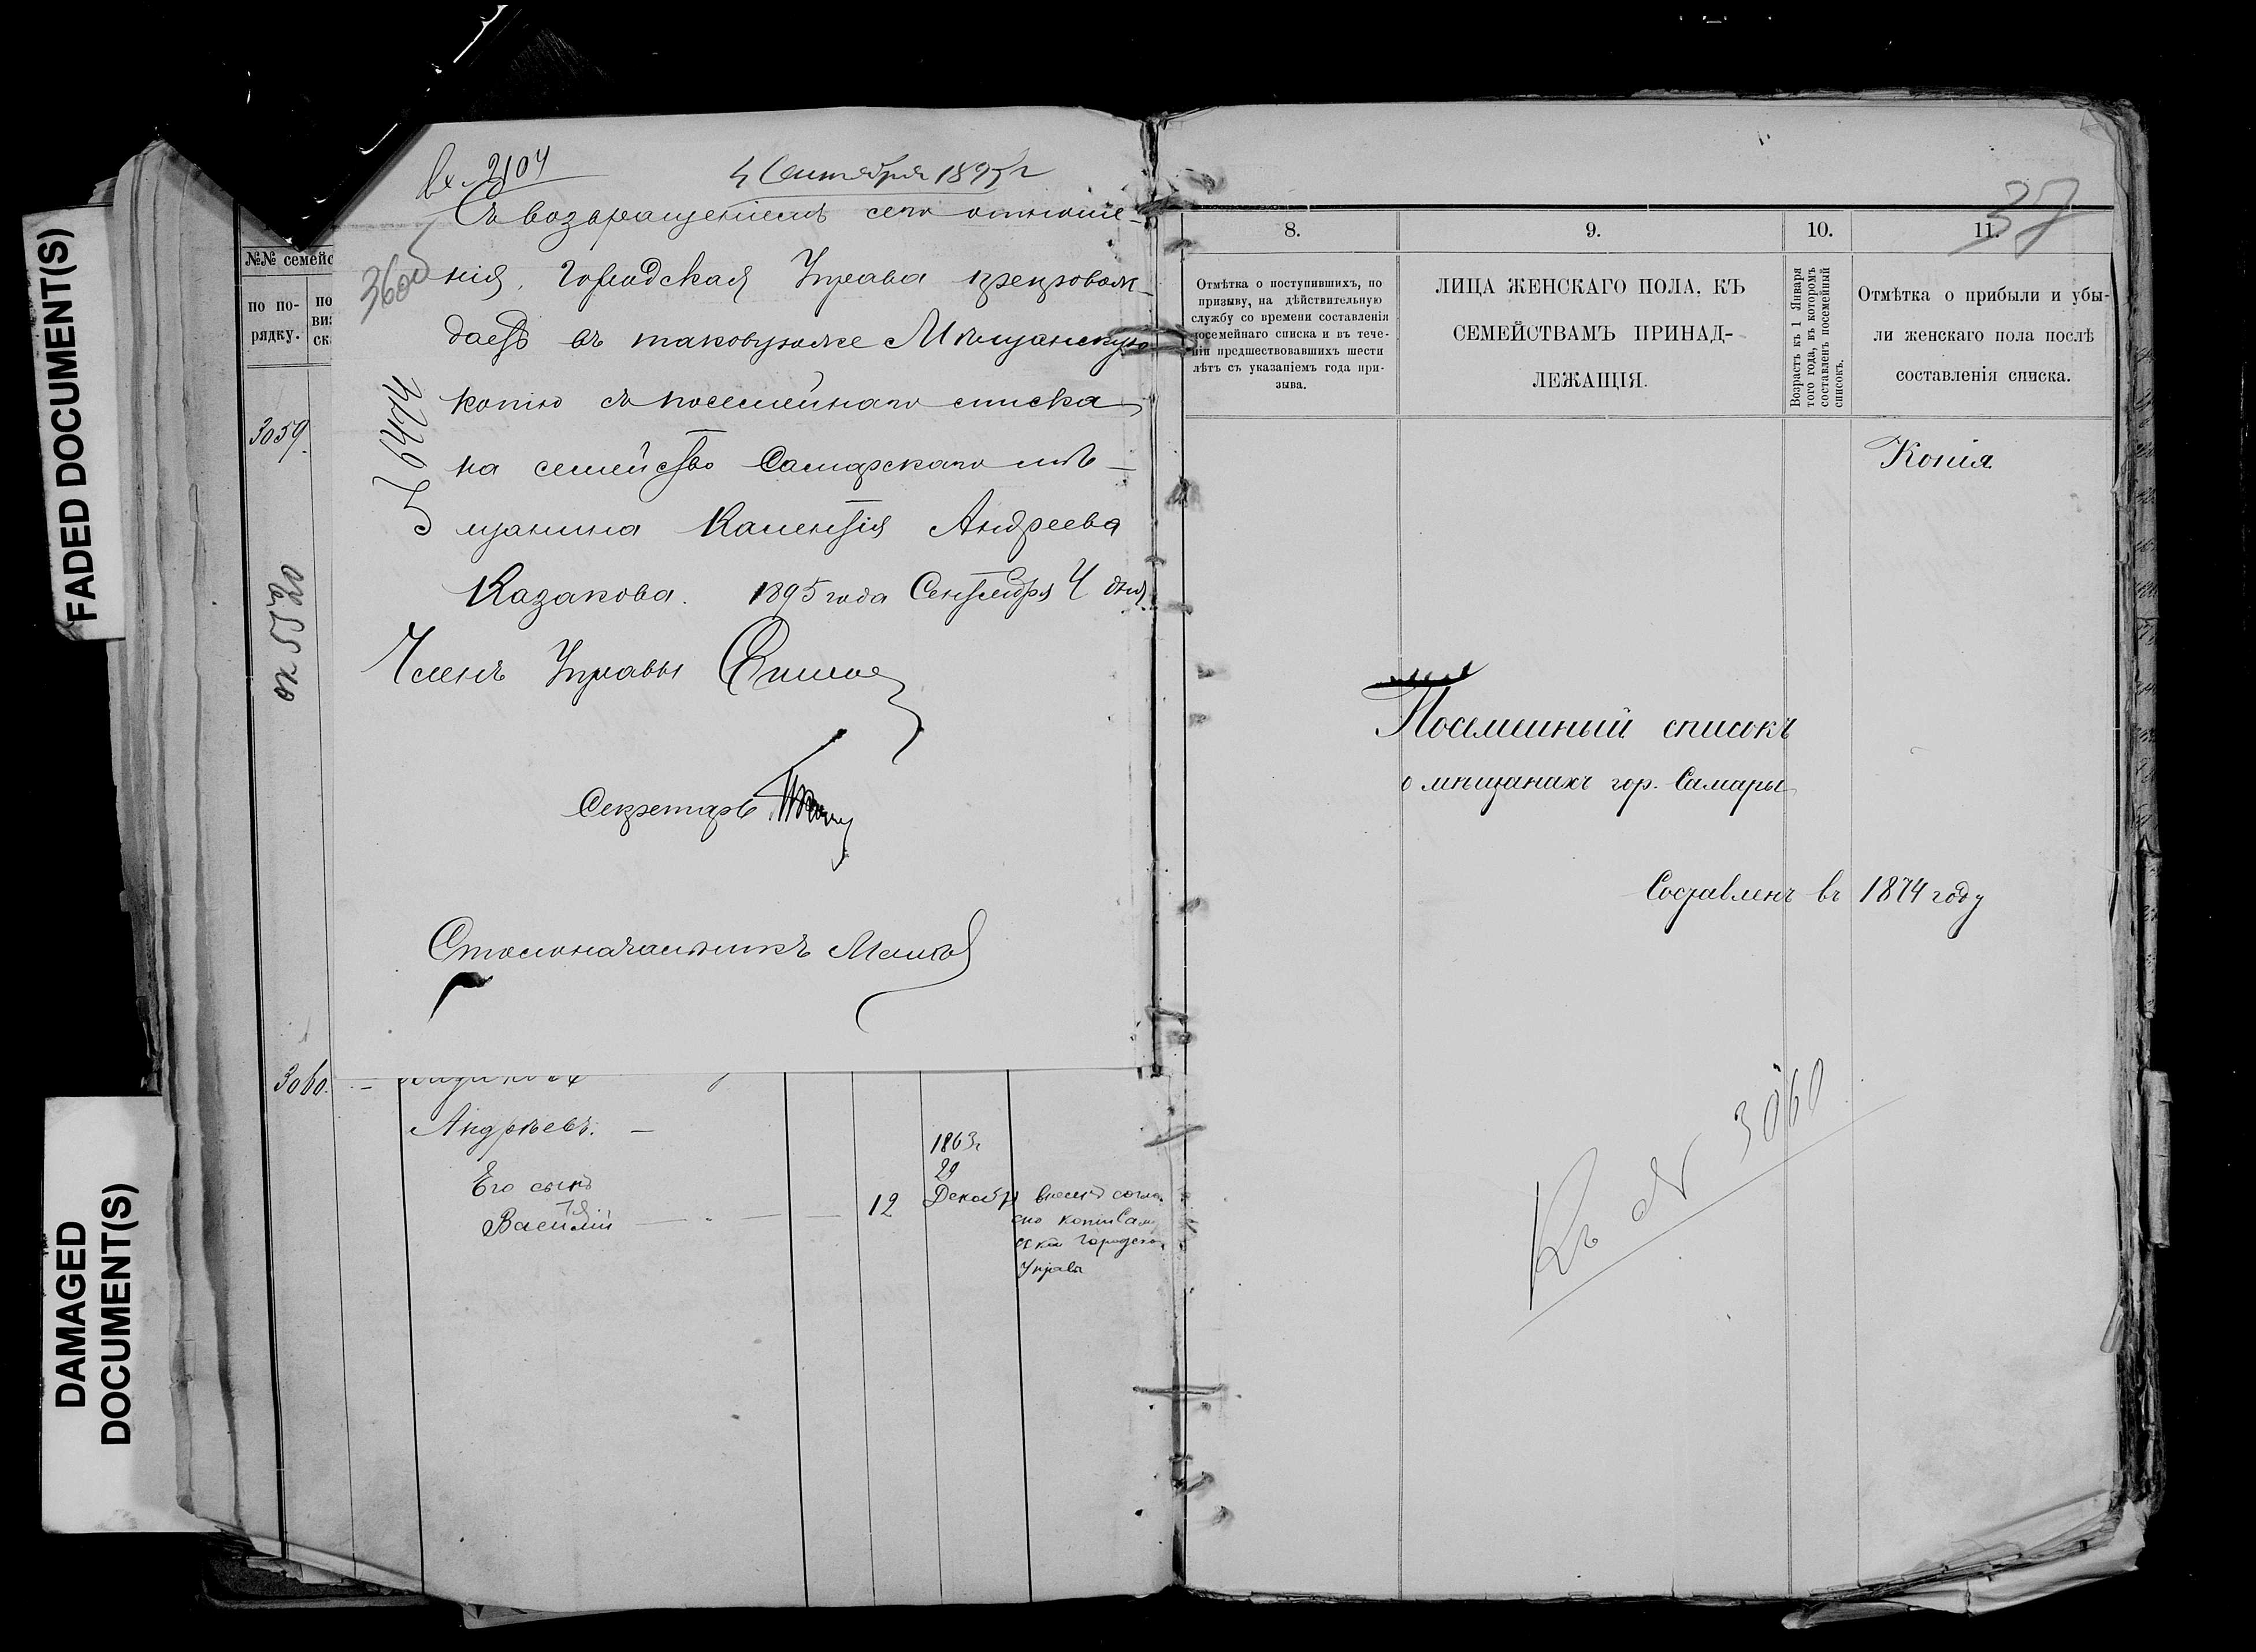 FADED DOCUMENT(S)
DAMAGED
DOCUMENT(S)
вх. 2104
4 Сентября 1895 г
Съ возвращеніемъ сего отноше-
нія, Городская Управа препровож-
даетъ въ таковую же Мѣщанскую
копію съ посемейнаго списка
на семейство Самарскаго мѣ-
щанина Калентія Андреева
Казакова. 1895 года Сентября 4 дня
Членъ Управы
Секретарь
Столоначальникъ
6474
№№ семейс
по по-
рядку.
по
ви
ск
3059.
3060.
Андрѣевъ. —
Его сынъ
Василій
12
1863 г
29
Декабр
внесенъ согла
сно копіи Сам
ской Городско
Управы
37
8.
9.
10.
11.
Отмѣтка о поступившихъ, по
призыву, на дѣйствительную
службу со времени составленія
посемейнаго списка и въ тече-
ніи предшествовавшихъ шести
лѣтъ съ указаніемъ года при-
зыва.
ЛИЦА ЖЕНСКАГО ПОЛА, КЪ
СЕМЕЙСТВАМЪ ПРИНАД-
ЛЕЖАЩІЯ.
Возрастъ къ 1 Января
того года, въ которомъ
составленъ посемейный
списокъ.
Отмѣтка о прибыли и убы-
ли женскаго пола послѣ
составленія списка.
Копія
Посемейный списокъ
о мѣщанахъ гор. Самары
Составленъ въ 1874 году
Къ № 3060